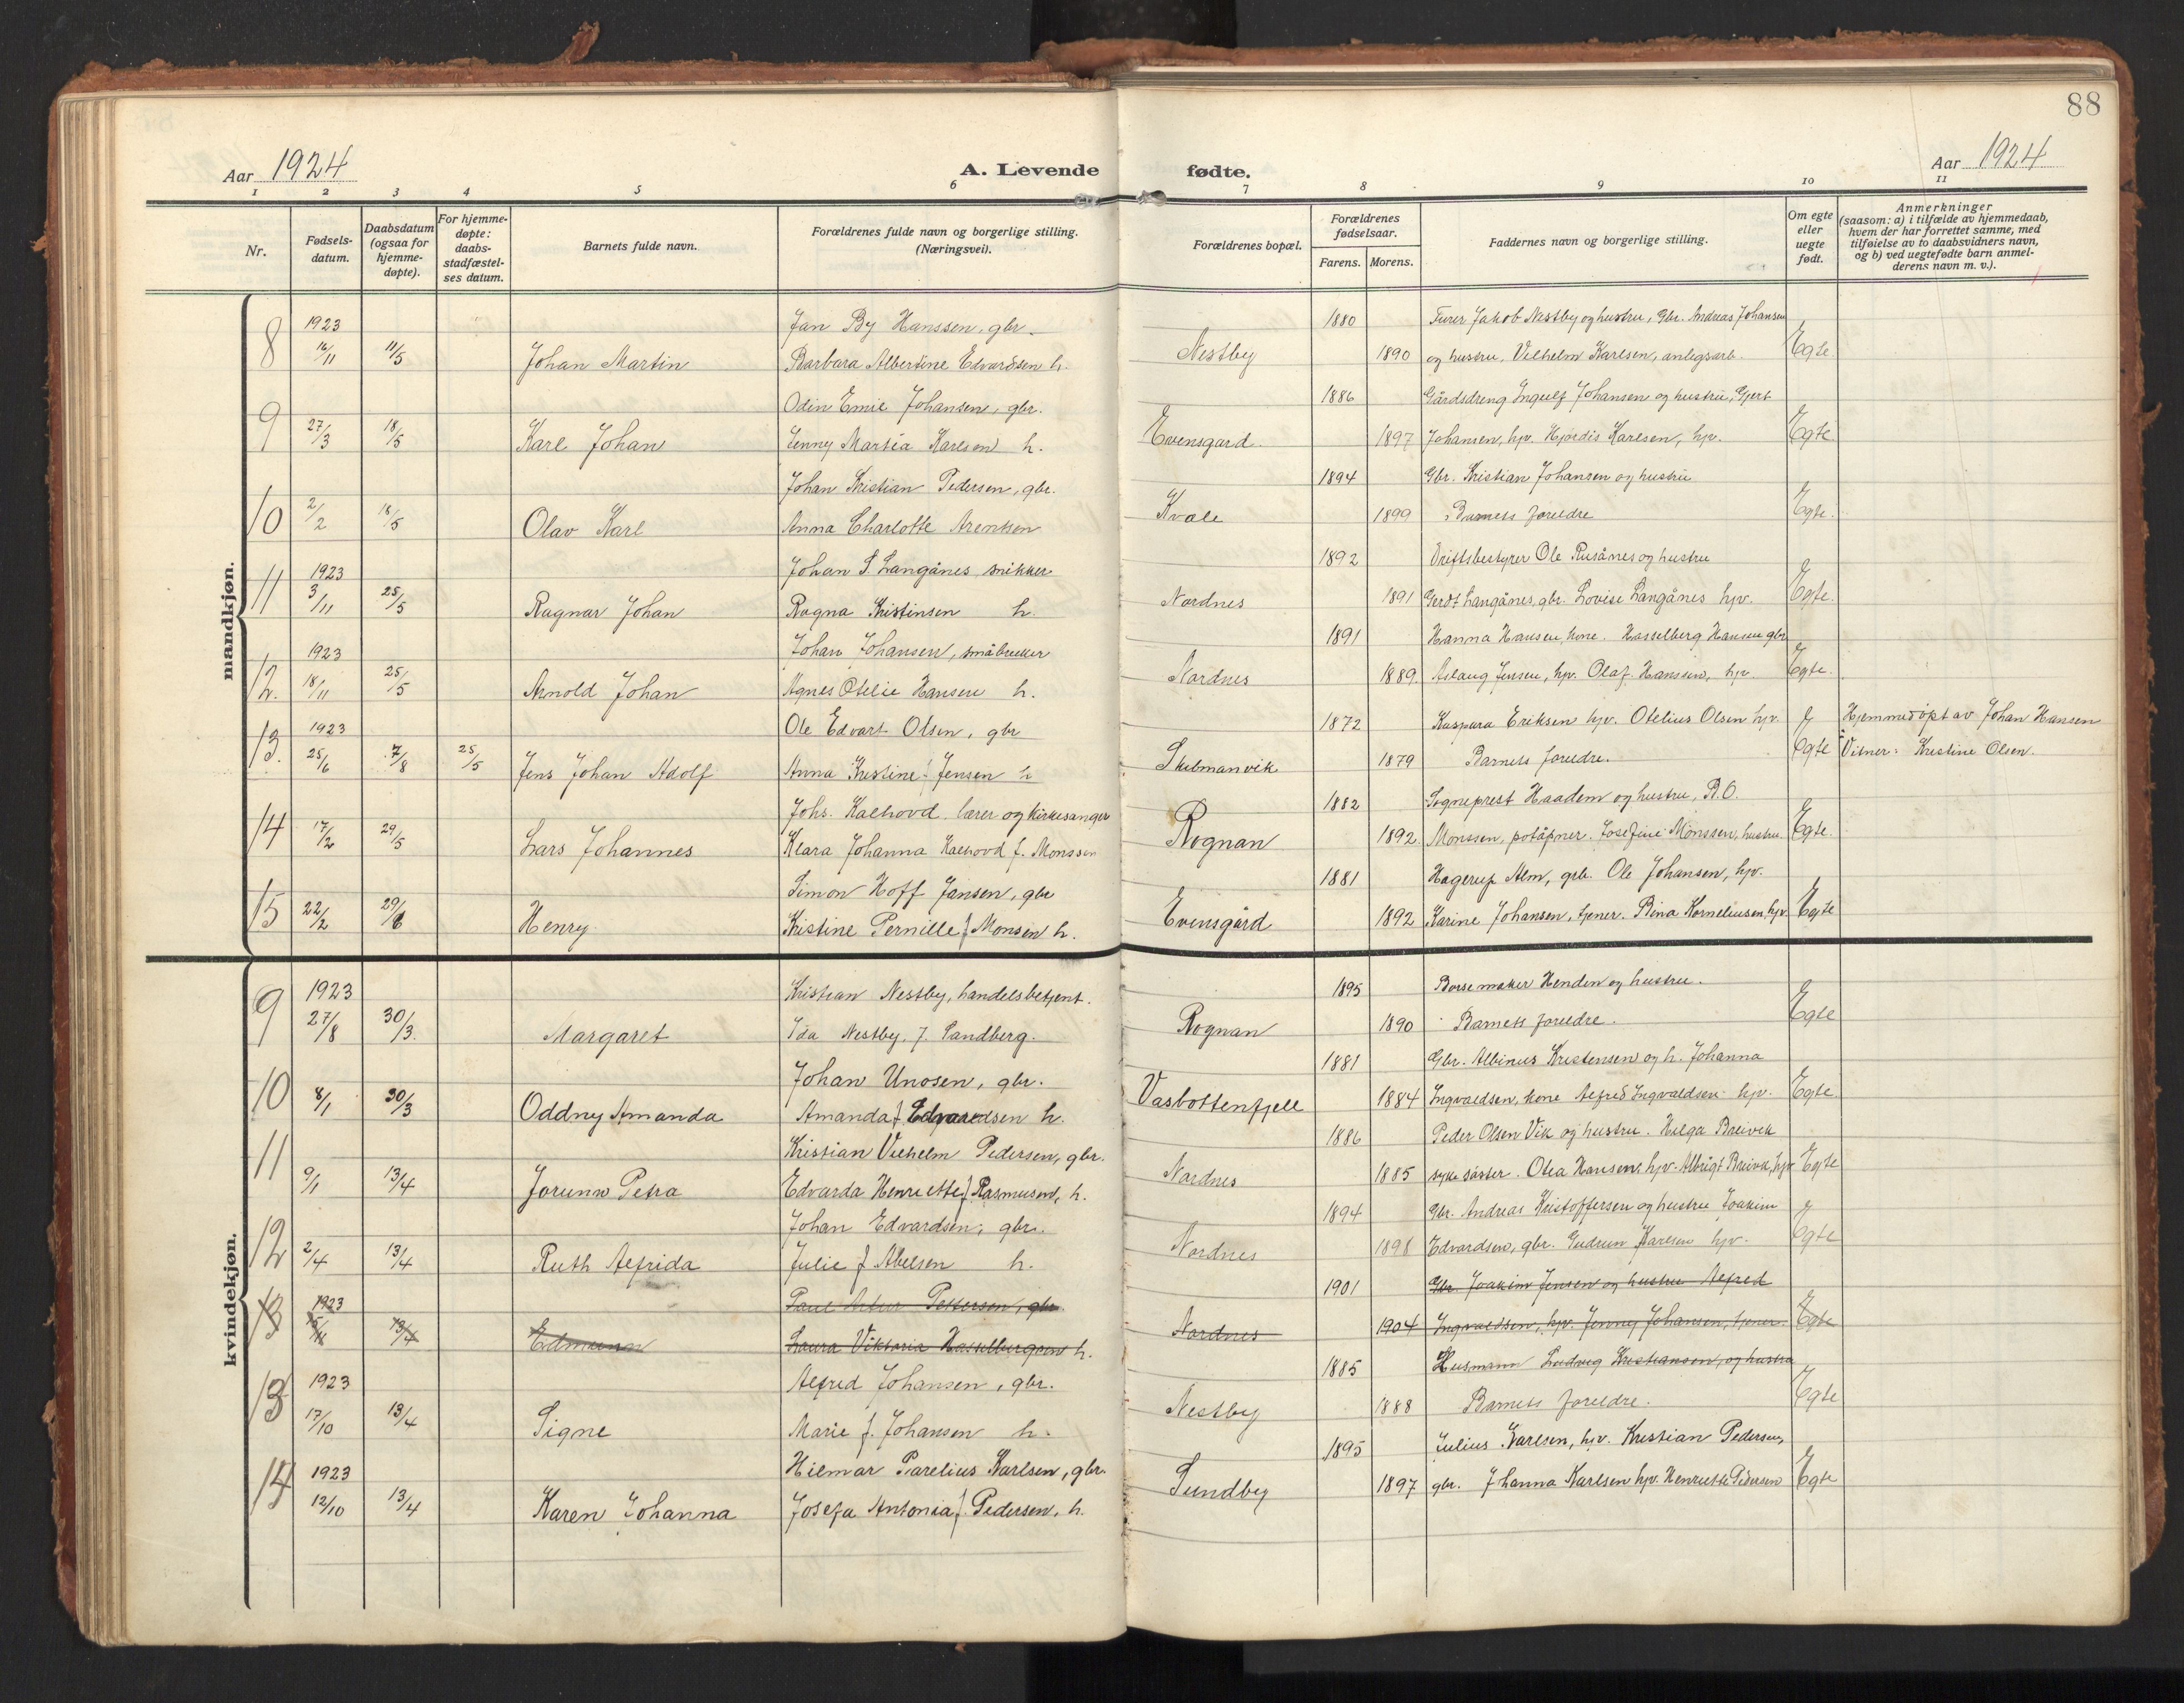 88
Aar 1924
A. Levende
fødte.
Aar 1924
1 2 3 4 5 6 7 8 9 10 11
Nr.
Fødsels-
datum.
Daabsdatum
(ogsaa for
hjemme-
døpte).
For hjemme-
døpte:
daabs-
stadfæstel-
ses datum.
Barnets fulde navn.
Forældrenes fulde navn og borgerlige stilling.
(Næringsvei).
Forældrenes bopæl.
Forældrenes
fødselsaar.
Farens. Morens.
Faddernes navn og borgerlige stilling.
Om egte
eller
uegte
født.
Anmerkninger
(saasom: a) i tilfælde av hjemmedaab,
hvem der har forrettet samme, med
tilføielse av to daabsvidners navn,
og b) ved uegtefødte barn anmel-
derens navn m. v.).
mandkjøn.
1923 Jan By Hanssen, gbr. 1880 Furer Jakob Nestby og hustru, Gbr. Andreas Johansen
8 16/11 11/5 Johan Martin Barbara Albertine Edvardsen h. Nestby 1890 og hustru. Vilhelm Karlsen, anlegsarb. Egte.
Odin Emil Johansen, gbr. 1886 Gårdsdreng Ingulf Johansen og hustru, Gjert
9 27/3 18/5 Karl Johan Jenny Martia Karlsen h. Evensgard. 1897 Johansen, hp. Hjørdis Karlsen, hp. Egte
Johan Kristian Pedersen, gbr. 1894 Gbr. Kristian Johansen og hustru
10 2/2 18/5 Olav Karl Anna Charlotte Arentsen Kvale 1899 Barnets foreldre Egte.
1923 Johan S. Langånes, snikker 1892 Driftsbestyrer Ole Rusånes og hustru
11 3/11 25/5 Ragnar Johan Ragna Kristinsen h. Nordnes 1891 Gerdt Langånes, gbr. Lovise Langånes hjv. Egte.
1923 Johan Johansen, småbruker 1891 Hanna Hansen, kone. Hasselberg Hansen gbr
12. 18/11 25/5 Arnold Johan Agnes Otelie Hansen h. Nordnes 1889. Aslaug Jensen, hjv. Olaf Hanssen, hjv Egte.
1923 Ole Edvart Olsen, gbr 1872 Kaspara Eriksen hjv. Otelius Olsen hjv. Hjemmedøpt av Johan Hansen
13. 25/6 7/8 25/5 Jens Johan Adolf Anna Kristine f. Jensen h Skulmanvik 1879 Barnets foreldre. Egte Vitner: Kristine Olsen.
Johs. Kalhovd, lærer og kirkesanger 1882 Sogneprest Haadem og hustru, R.O.
14 17/2 29/5 Lars Johannes Klara Johanna Kalhovd f. Monssen Rognan 1892 Monssen, potåpner. Josefine Monssen, hustru. Egte.
Simon Hoff Jansen, gbr 1881 Hagerup Alm, grb. Ole Johansen, hjv.
15 22/2 29/6 Henry Kristine Pernille f Monsen h. Evensgård 1892 Karine Johansen, tjener. Rina Korneliusen, hjv Egte
kvindekjøn.
9 1923 Kristian Nestby, handelsbetjent. 1895 Børsemaker Henden og hustru.
27/8 30/3. Margaret Ida Nestby, f. Sandberg. Rognan 1890 Barnets foreldre. Egte
Johan Unosen, gbr. 1881 Gbr. Albinus Kristensen og h. Johanna
10 8/1 30/3 Oddny Amanda Amanda f Edvardsen h. Vasbottenfjell 1884 Ingvaldsen, kone Alfred Ingvaldsen hjv. Egte.
Kristian Vilhelm Pedersen, gbr. 1886 Peder Olsen Vik og hustru. Helga Breivik
11 9/1 13/4 Jorunn Petra Edvarda Henriette f Rasmusen, h. Nordnes 1885 sykesøster. Otea Hansen, hjv. Albrigt Breivik, hjv Egte
Johan Edvardsen, gbr. 1894 Gbr. Andreas Kristoffersen og hustru Joakim
12 2/4 13/4 Ruth Alfrida Julie f Abelsen h. Nordnes 1898 Edvardsen, gbr. Gudrun Karlsen hjv. Egte
1923 Paul Artur Pettersen, gbr. 1901 Gbr. Joakim Jensen og hustru Alfred
13 13/4 Edmunn Laura Viktoria Hasselbergsen h. Nordnes 1904 Ingvaldsen, hjv. Jenny Johansen, tjener. Egte
1923 Alfred Johansen, gbr. 1885 Husmann Ludvig Kristiansen, og hustru
13 17/10 13/4 Signe Marie f. Johansen h. Nestby 1888 Barnets foreldre. Egte
1923 Hilmar Parelius Karlsen, gbr. 1895 Julius Karlsen, hjv. Kristian Pedersen,
14 12/10 13/4 Karen Johanna Josefa Antonia f. Pedersen, h. Sundby 1897 gbr. Johanna Karlsen hjv. Henriette Pedersen Egte